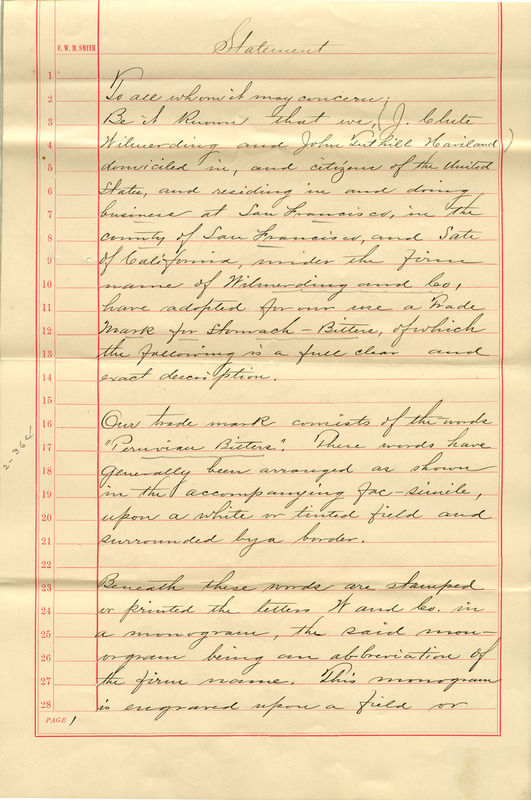 Statement
C. W. M. SMITH
1
2 To all whom it may concern;
3 Be it Known that we, (J. Clute
4 Wilmerding and John Tuthill Haviland)
5 domiciled in, and citizens of the United
6 States, and residing in and doing
7 business at San Francisco, in the
8 county of San Francisco, and Sate
9 of California, under the firm
10 name of Wilmerding and Co,
11 have adopted for our use a Trade
12 Mark for Stomach-Bitters, of which
13 the following is a full clear and
14 exact description.
15
16 Our trade mark consists of the words
17 "Peruvian Bitters". These words have
18 generally been arranged as shown
19 in the accompanying fac-simile,
20 upon a white or tinted field and
21 surrounded by a border.
22
23 Beneath these words are stamped
24 or printed the letters W and Co. in
25 a monogram, the said mon-
26 orgram being an abbreviation of
27 the firm name. This monogram
28 is engraved upon a field or
PAGE 1